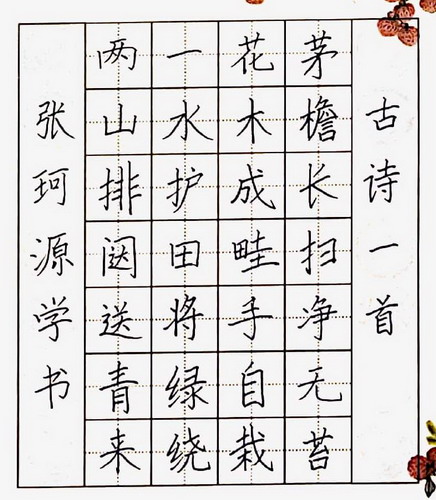 古诗一首
茅檐长扫净无苔
花木成畦手自栽
一水护田将绿绕
两山排闼送青来
张珂源学书